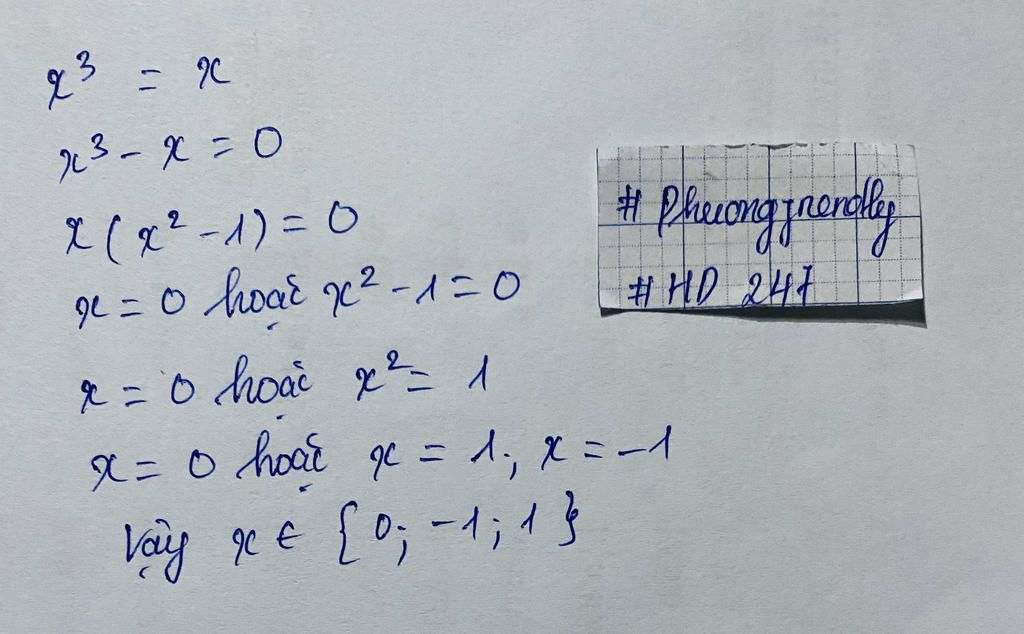 x³ = x
x³ - x = 0
x(x² - 1) = 0
x = 0 hoặc x² - 1 = 0
x = 0 hoặc x² = 1
x = 0 hoặc x = 1; x = -1
Vậy x ∈ {0; -1; 1}
# Phuongfriendly
# HD 247